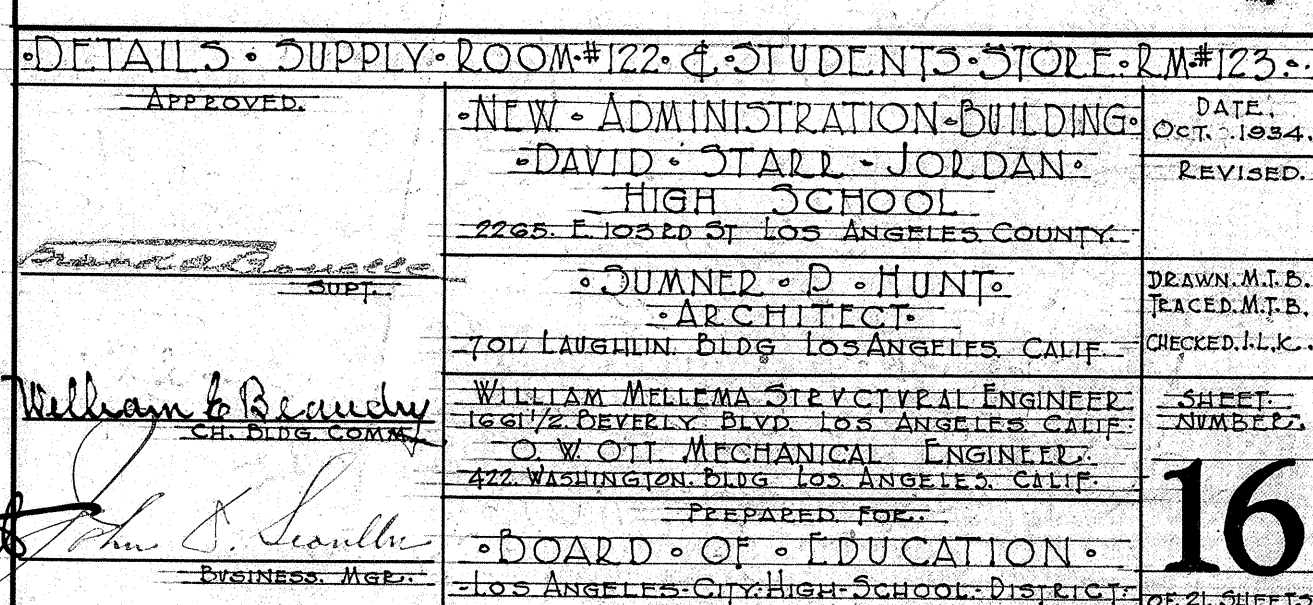 ·DETAILS·SUPPLY·ROOM·#122·&·STUDENTS·STORE·RM·#123·
APPROVED.
SUPT.
William E Beaudry
CH. BLDG. COMM.
John D.
BVSINESS. MGR.
·NEW·ADMINISTRATION·BUILDING·
·DAVID·STARR·JORDAN·
HIGH SCHOOL
2265. E. 103RD ST LOS ANGELES COUNTY.
·SUMNER·D·HUNT·
·ARCHITECT·
701, LAUGHLIN. BLDG LOS ANGELES. CALIF.
WILLIAM MELLEMA STRVCTVRAL ENGINEER
1661 1/2 BEVERLY BLVD. LOS ANGELES CALIF.
O. W. OTT. MECHANICAL ENGINEER.
422. WASHINGTON. BLDG LOS ANGELES. CALIF.
PREPARED FOR.
·BOARD·OF·EDUCATION·
·LOS ANGELES·CITY·HIGH·SCHOOL·DISTRICT·
DATE.
OCT. 1934.
REVISED.
DRAWN. M.T.B.
TRACED. M.T.B.
CHECKED. I.L.K.
SHEET.
NUMBER.
16
OF 21 SHEETS